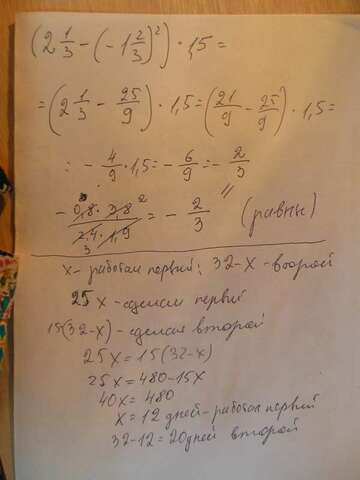 (2 1/3 - (-1 2/3)²) · 1,5 =
= (2 1/3 - 25/9) · 1,5 = (21/9 - 25/9) · 1,5 =
= - 4/9 · 1,5 = - 6/9 = - 2/3
- 0,8 · 3,8 2 / 2,4 · 1,9 3 = - 2/3 (равны)
x - работал первый; 32-x - второй
25x - сделал первый
15(32-x) - сделал второй
25x = 15(32-x)
25x = 480-15x
40x = 480
x = 12 дней - работал первый
32-12 = 20 дней второй